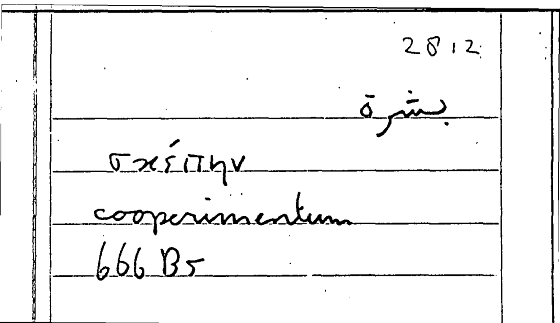 2812
بشرة
σκέπην
cooperimentum
666 B5